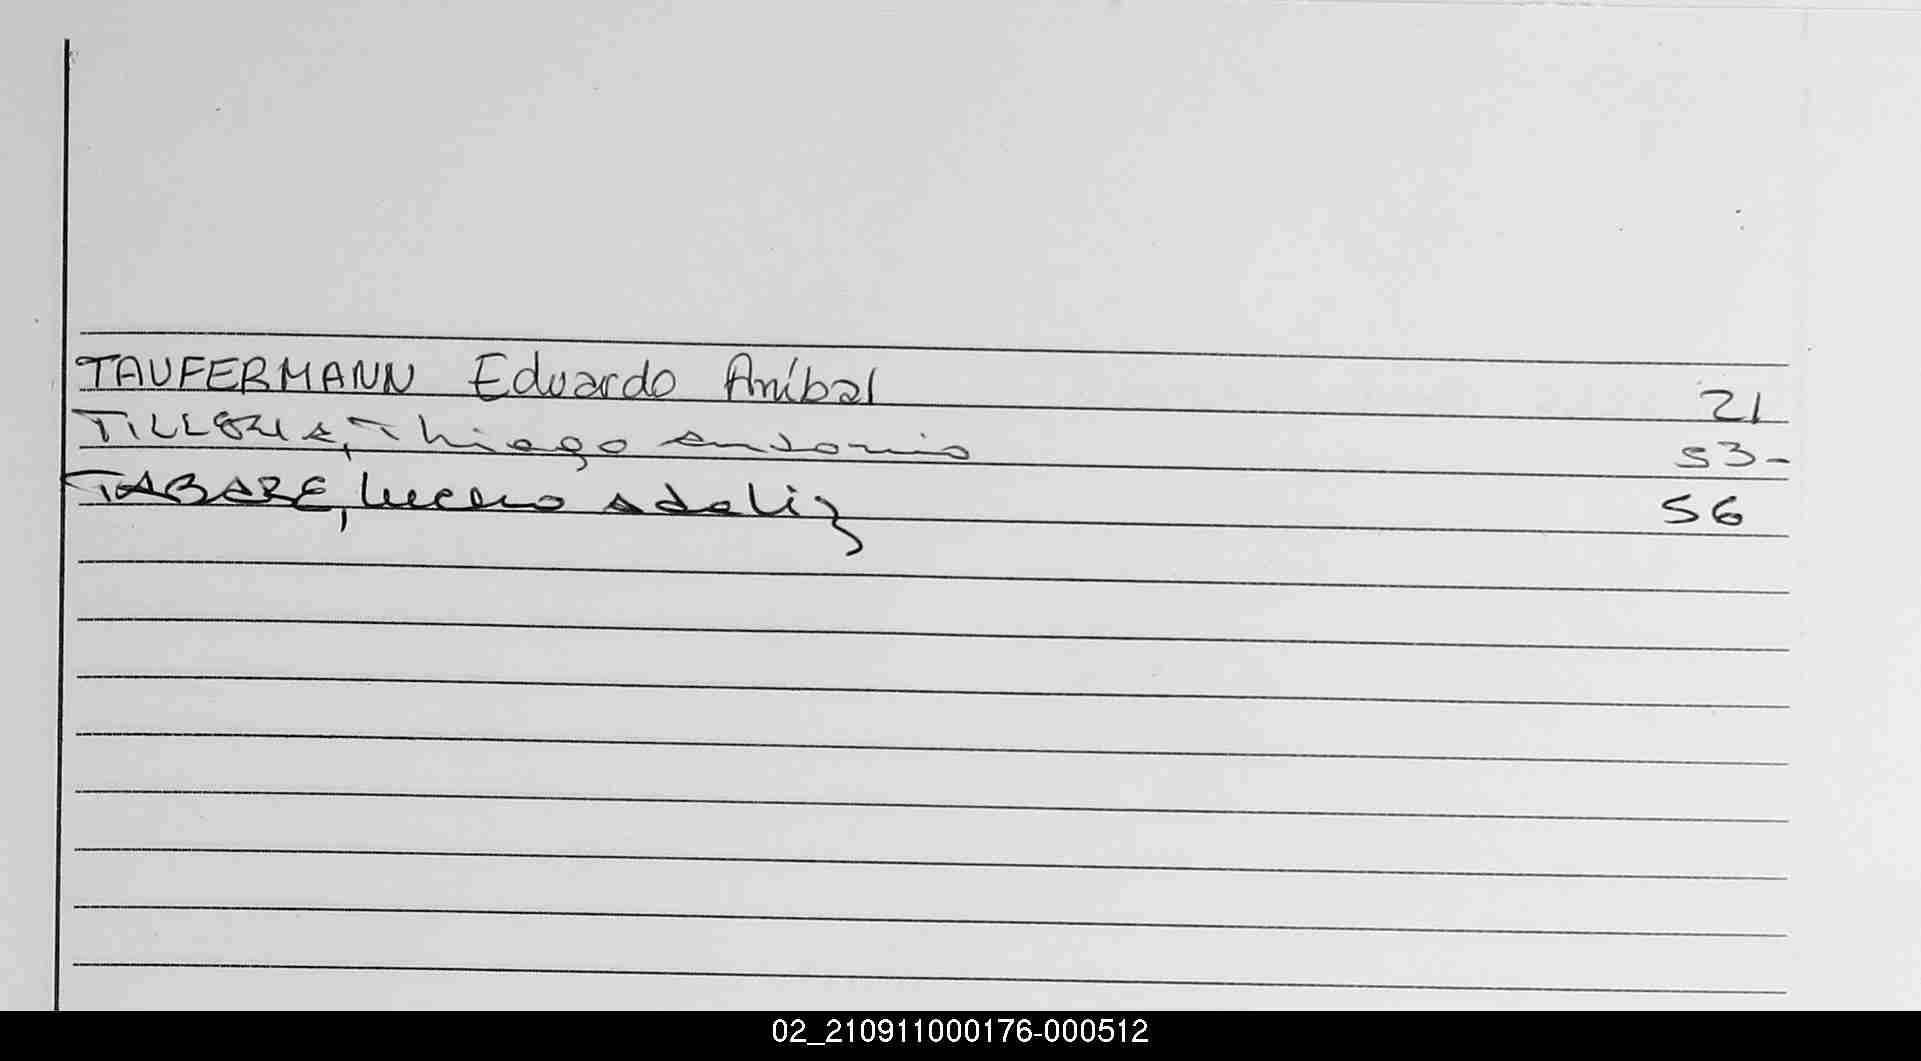 TAUFERMANN Eduardo Aníbal 21
TILLERIA, Thiago Antonio 53-
TABARE, Lucero Adaliz 56
02_210911000176-000512